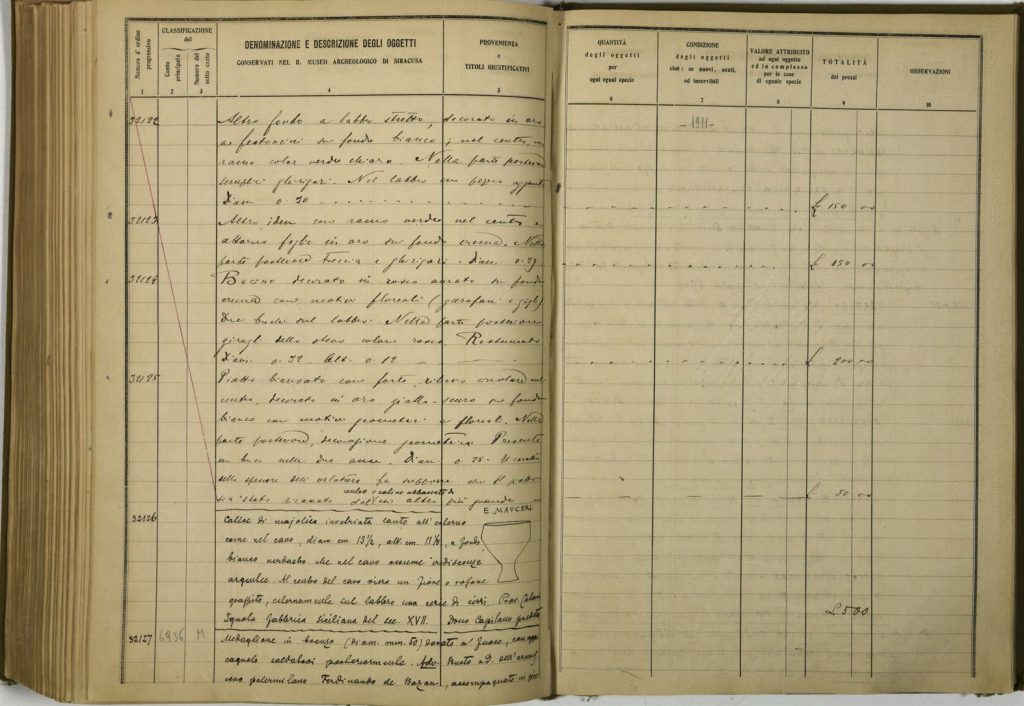 Numero d'ordine progressivo
CLASSIFICAZIONE
del
Conto principale
Numero del sotto conto
DENOMINAZIONE E DESCRIZIONE DEGLI OGGETTI
CONSERVATI NEL R. MUSEO ARCHEOLOGICO DI SIRACUSA
PROVENIENZA
e
TITOLI GIUSTIFICATIVI
1 2 3 4 5
QUANTITÀ
degli oggetti
per
ogni egual specie
CONDIZIONE
degli oggetti
cioè: se nuovi, usati,
od inservibili
VALORE ATTRIBUITO
ad ogni oggetto
ed in complesso
per le cose
di eguale specie
TOTALITÀ
dei prezzi
OSSERVAZIONI
6 7 8 9 10
32122 Altro fondo a labbro stretto, decorato in oro
a festoncini su fondo bianco; nel centro, un
ramo color verde chiaro. Nella parte posteriore
semplici ghirigori. Nel labbro un pezzo
Diam. 0.30
32123 Altro idem con ramo verde nel centro e
attorno foglie in oro su fondo crema. Nella
parte posteriore treccia e ghirigori. Diam. 0.29
32124 Bacino decorato in rosso aurato su fondo
crema con motivi floreali (garofani e gigli)
Due buchi sul labbro. Nella parte posteriore
girogli dello stesso colore rosso Restaurato
Diam. 0.32. Alt. 0.12
32125 Piatto biansato con forte rilievo circolare nel
centro, decorato in oro giallo-scuro su fondo
bianco con motivi geometrici e floreali. Nella
parte posteriore, decorazione geometrica. Presenta
un buco nelle due anse. Diam. 0.25. Il
dello spessore dell' fa supporre che il piatto
sia stato ricavato dall' altro più grande
centro o catino abbassato di
E. MAUCERI
32126 Calice di majolica invetriata tanto all'esterno
come nel cavo, diam. cm. 13½, alt. cm. 11½, a fondo
bianco verdastro che nel cavo assume iridiscenze
argentee. Al centro del cavo vi era un fiore o rosone
graffito, esternamente sul labbro una serie di cirri. Prov.
Ignota fabbrica siciliana del sec. XVII. Dono Capitano
32127 6936 M Medaglione in bronzo (diam. mm. 50) dorato a fuoco, con
cagnolo saldatovi posteriormente. Busto ad.
palermitano Ferdinando de Bazan, accompagnato in
-1911-
£ 150 00
£ 150 00
£ 200 00
£ 50 00
£. 500